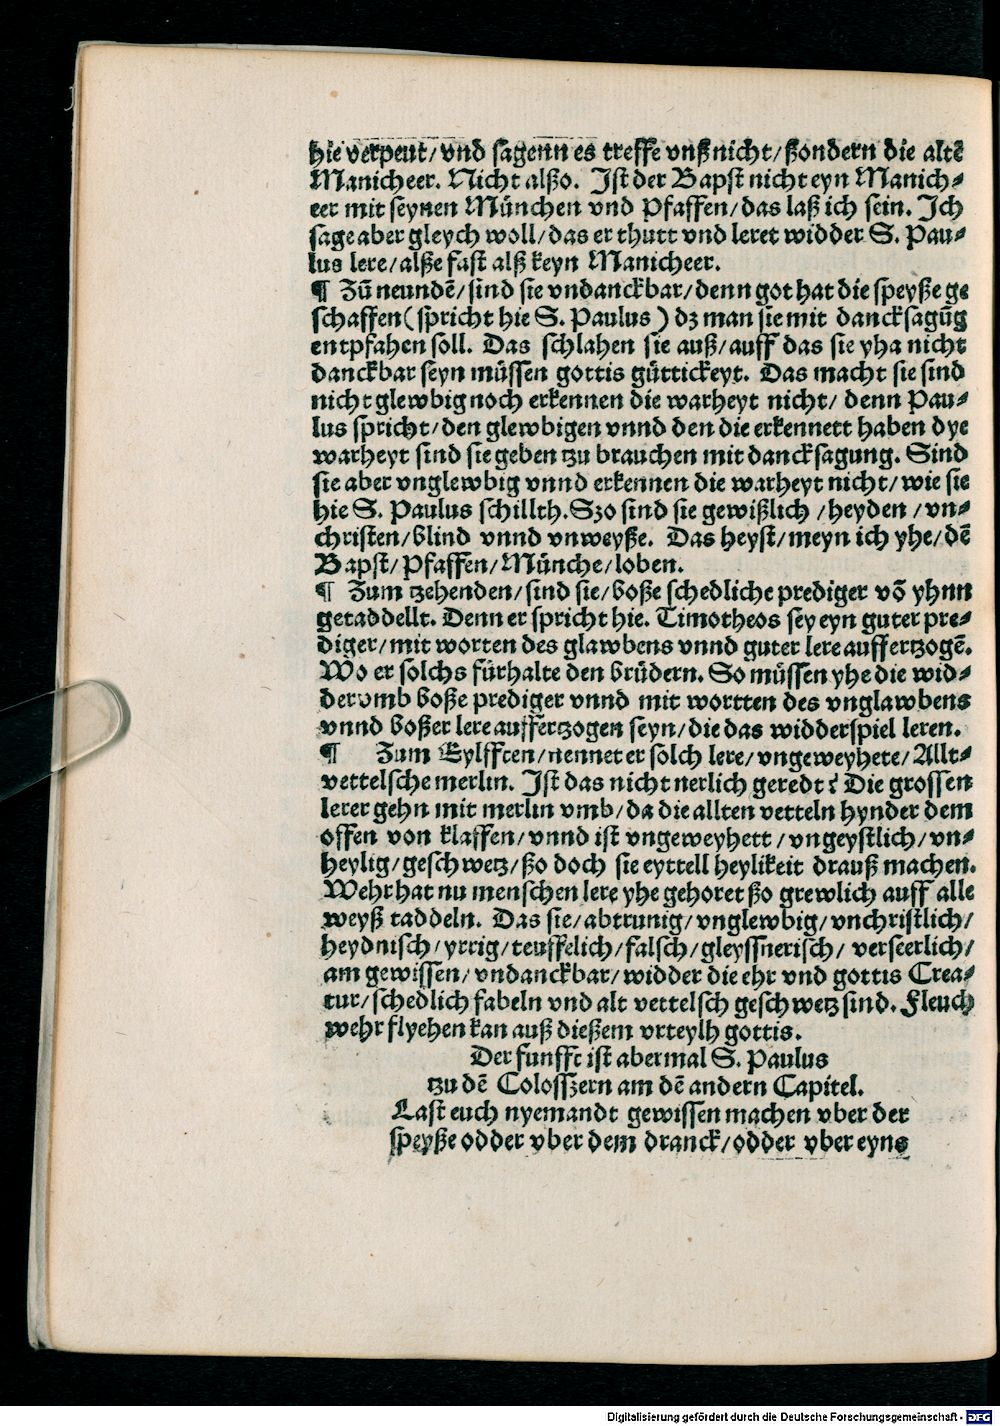 hie verpeut/ vnd sagenn es treffe vnß nicht/ ßondern die altē
Manicheer. Nicht alßo. Ist der Bapst nicht eyn Manich⸗
eer mit seynen München vnd Pfaffen/ das laß ich sein. Ich
sage aber gleych woll/ das er thutt vnd leret widder S. Pau⸗
lus lere/ alße fast alß keyn Manicheer.
¶ Zū neundē/ sind sie vndanckbar/ denn got hat die speyße ge
schaffen (spricht hie S. Paulus) dz man sie mit dancksagūg
entpfahen soll. Das schlahen sie auß/ auff das sie yha nicht
danckbar seyn müssen gottis güttickeyt. Das macht sie sind
nicht glewbig noch erkennen die warheyt nicht/ denn Pau⸗
lus spricht/ den glewbigen vnnd den die erkennett haben dye
warheyt sind sie geben tzu brauchen mit dancksagung. Sind
sie aber vnglewbig vnnd erkennen die warheyt nicht/ wie sie
hie S. Paulus schillth. Szo sind sie gewißlich /heyden /vn⸗
christen/ blind vnnd vnweyße. Das heyst/ meyn ich yhe/ dē
Bapst/ Pfaffen/ Münche/ loben.
¶ Zum tzehenden/ sind sie/ boße schedliche prediger vō yhnn
getaddellt. Denn er spricht hie. Timotheos sey eyn guter pre⸗
diger/ mit worten des glawbens vnnd guter lere auffertzogē.
Wo er solchs fürhalte den brüdern. So müssen yhe die wid⸗
der vmb boße prediger vnnd mit wortten des vnglawbens
vnnd boßer lere auffertzogen seyn/ die das widderspiel leren.
¶ Zum Eylfften/ nennet er solch lere/ vngeweyhete/ Allt⸗
vettelsche merlin. Ist das nicht nerlich geredt? Die grossen
lerer gehn mit merlin vmb/ da die allten vetteln hynder dem
offen von klaffen/ vnnd ist vngeweyhett/ vngeystlich/ vn⸗
heylig/ geschwetz/ ßo doch sie eyttell heylikeit drauß machen.
Wehr hat nu menschen lere yhe gehoret ßo grewlich auff alle
weyß taddeln. Das sie/ abtrunig/ vnglewbig/ vnchristlich/
heydnisch/ yrrig/ teuffelich/ falsch/ gleyssnerisch/ verseerlich/
am gewissen/ vndanckbar/ widder die ehr vnd gottis Crea⸗
tur/ schedlich fabeln vnd alt vettelsch geschwetz sind. Fleuch
wehr flyehen kan auß dießem vrteylh gottis.
Der funfft ist abermal S. Paulus
tzu dē Colosszern am dē andern Capitel.
Last euch nyemandt gewissen machen vber der
speyße odder vber dem dranck/ odder vber eyns
Digitalisierung gefördert durch die Deutsche Forschungsgemeinschaft - DFG